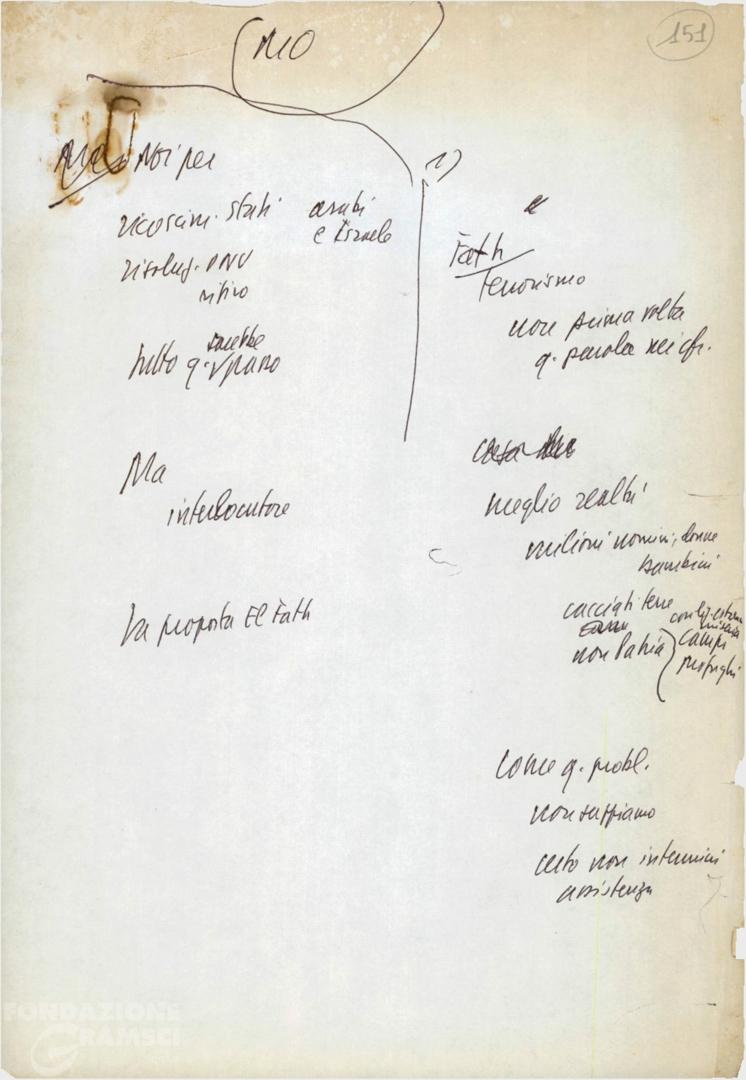 MO
151
Noi per
ricoscim. stati arabi
e Israele
risoluz. ONU
ritiro
sarebbe
tutto q. piano
Ma
interlocutore
la proposta El Fath
1)
Fath
terrorismo
non prima volta
q. parola nei cfr.
meglio realtà
milioni uomini, donne
bambini
cacciati terre
non Patria
campi
profughi
come q. probl.
non sappiamo
certo non in termini
assistenza
FONDAZIONE
GRAMSCI